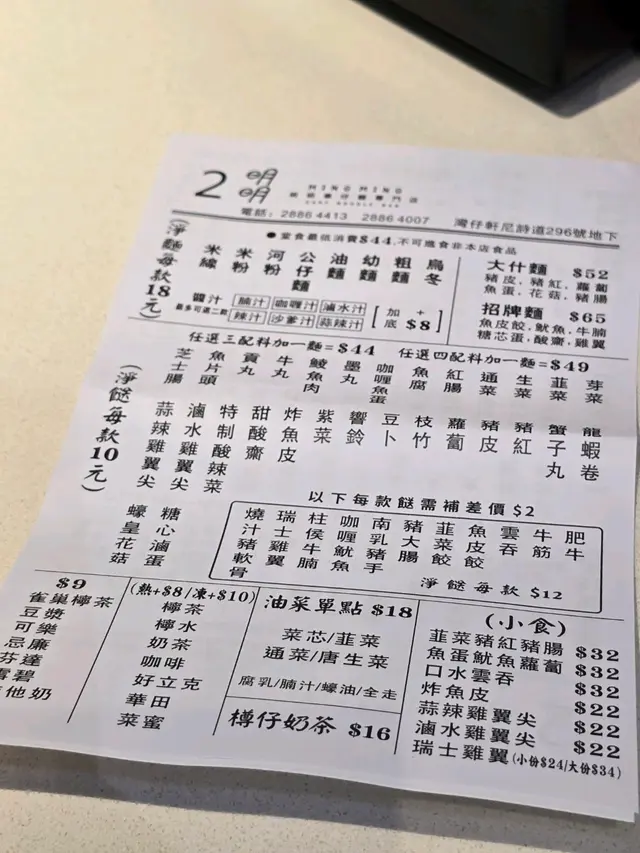 2 明明
MING MING
CART NOODLE BAR
電話：2886 4413 2886 4007 灣仔軒尼詩道296號地下
●堂食最低消費$44,不可進食非本店食品
(淨麵每款18元)
米線
米粉
河粉
公仔麵
油麵
幼麵
粗麵
烏冬
大什麵 $52
豬皮，豬紅，蘿蔔
魚蛋，花菇，豬腸
招牌麵 $65
魚皮餃，魷魚，牛腩
糖芯蛋，酸齋，雞翼
醬汁
最多可選二款
腩汁 咖喱汁 滷水汁
辣汁 沙爹汁 蒜辣汁
[加底+$8]
任選三配料加一麵=$44 任選四配料加一麵=$49
(淨餸每款10元)
芝士腸
魚片頭
貢丸
牛丸
鯪魚肉
墨丸
咖喱魚蛋
魚腐
紅腸
通菜
生菜
韮菜
芽菜
蒜辣雞翼尖
滷水雞翼尖
特制酸辣菜
甜酸齋
炸魚皮
紫菜
響鈴
豆卜
枝竹
蘿蔔
豬皮
豬紅
蟹子丸
龍蝦卷
蠔皇花菇
糖心滷蛋
以下每款餸需補差價$2
燒汁豬軟骨
瑞士雞翼
柱侯牛腩
咖喱魷魚
南乳豬手
豬大腸
韮菜餃
魚皮餃
雲吞
牛筋
肥牛
淨餸每款$12
$9
雀巢檸茶
豆漿
可樂
忌廉
芬達
雪碧
維他奶
(熱+$8/凍+$10)
檸茶
檸水
奶茶
咖啡
好立克
華田
菜蜜
油菜單點 $18
菜芯/韮菜
通菜/唐生菜
腐乳/腩汁/蠔油/全走
樽仔奶茶 $16
(小食)
韮菜豬紅豬腸 $32
魚蛋魷魚蘿蔔 $32
口水雲吞 $32
炸魚皮 $22
蒜辣雞翼尖 $22
滷水雞翼尖 $22
瑞士雞翼(小份$24/大份$34)